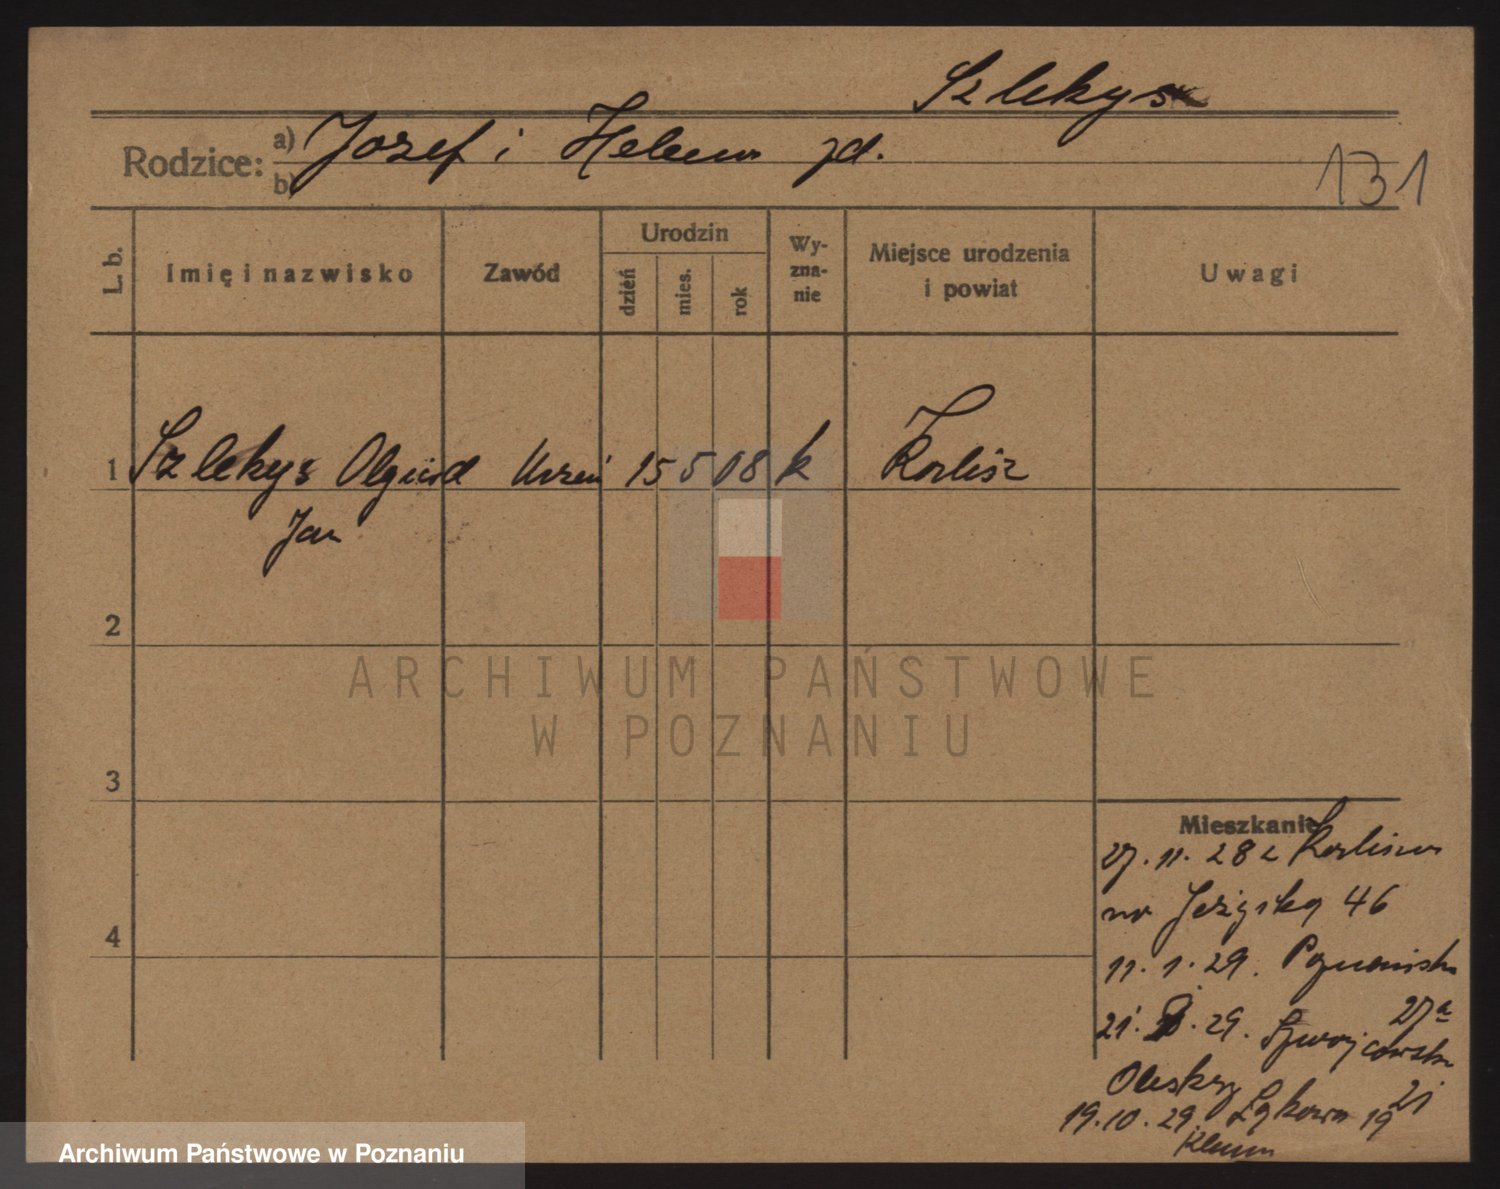 Szlekys
Rodzice: a) Józef i Helena zd.
b)
131
L. b. Imię i nazwisko Zawód Urodzin dzień mies. rok Wy-zna-nie Miejsce urodzenia i powiat Uwagi
1 Szlekys Olgierd Uczeń 15 5 08 k Kalisz
Jan
2
3
4
Mieszkanie
27. 11. 28 z Kalisza
na 46
11. 1. 29. Poznańska
27a
21. 29. Szwajcarska
21
19. 10. 29. Łąkowa 19
ARCHIWUM PAŃSTWOWE
W POZNANIU
Archiwum Państwowe w Poznaniu